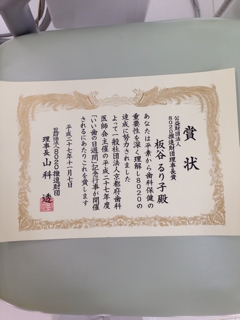 賞状
公益財団法人
8020推進財団理事長賞
板谷るり子殿
あなたは平素から歯科保健の
重要性を深く理解し8020の
達成に努力されました
よって一般社団法人京都府歯科
医師会主催の平成二十七年度
「いい歯の日週間」記念行事が開催
されるにあたりこれを賞します
平成二十七年十一月七日
公益財団法人8020推進財団
理事長 山科透